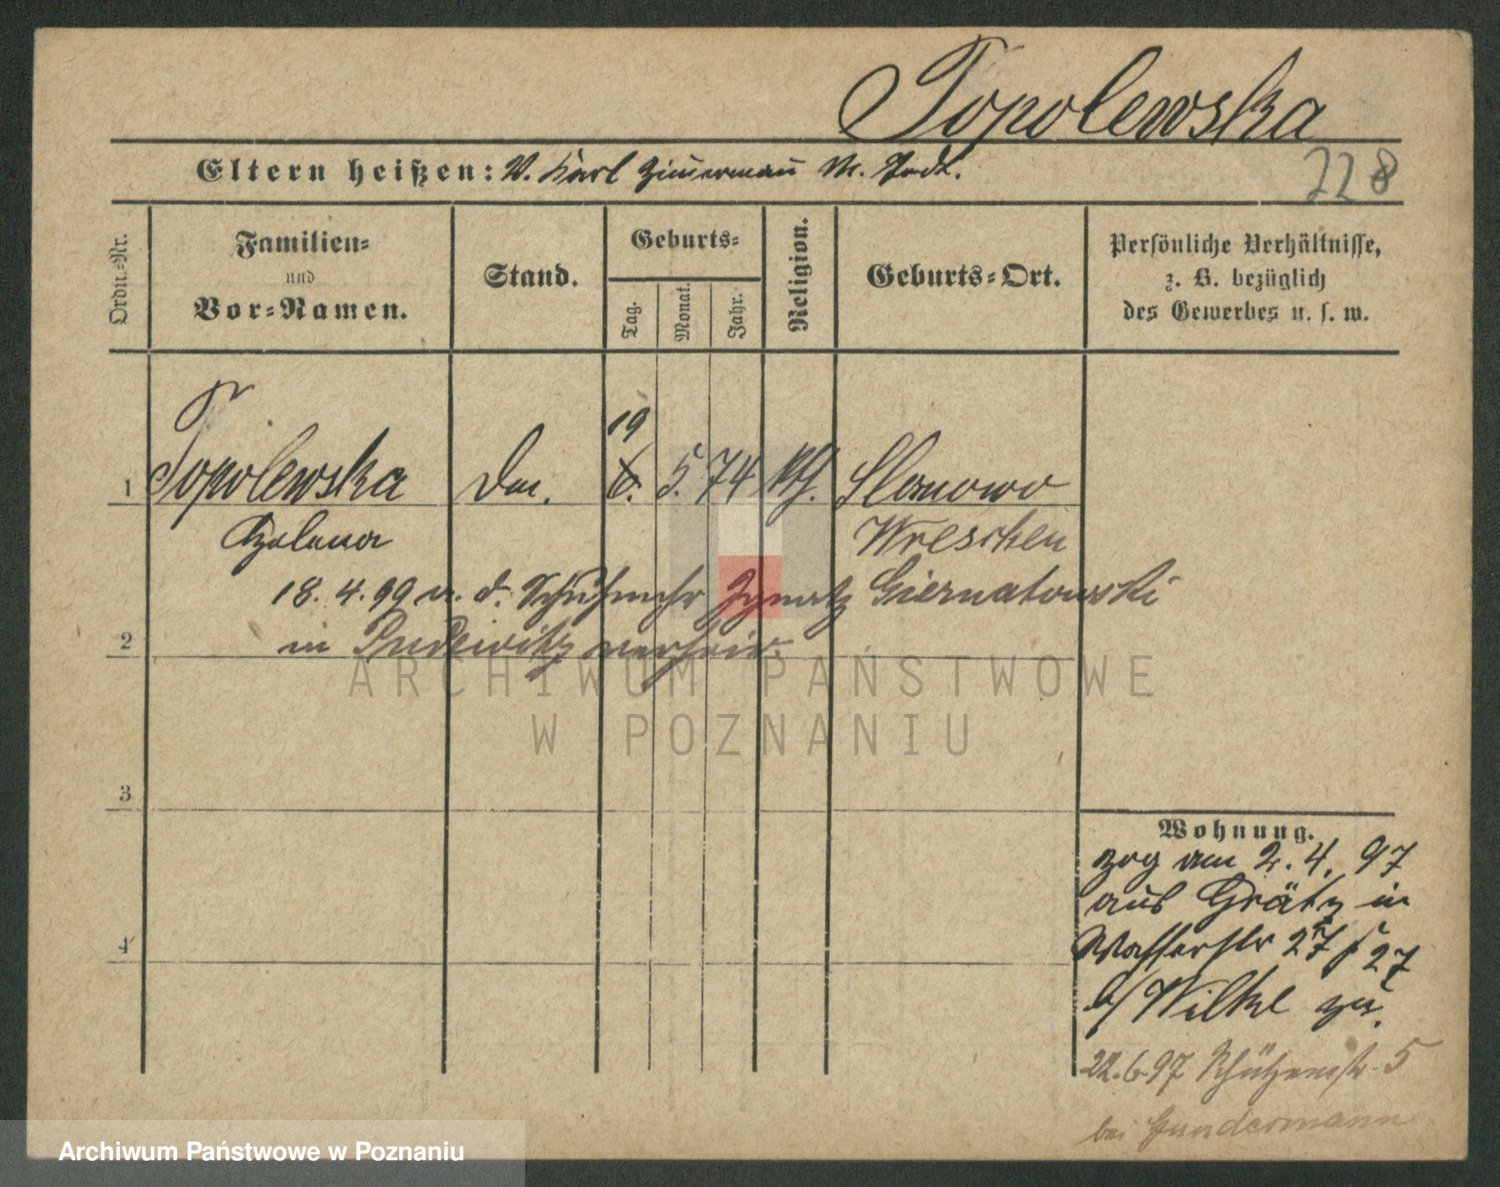 Topolewska
Eltern heißen: V. Karl Zimmermann M. Todt.
228
Ordn.=Nr.
Familien=
und
Vor=Namen.
Stand.
Geburts=
Tag.
Monat.
Jahr.
Religion.
Geburts=Ort.
Persönliche Verhältnisse,
z. B. bezüglich
des Gewerbes u. s. w.
1 Topolewska 19 6. 5. 74 kth. Slomowo
Helena Wreschen
18. 4. 99 m. d. Schuhmchr Ignatz Giernatowski
2 in Pudewitz verheir.
3
4
Wohnung.
zog am 2. 4. 97
aus Grätz in
Wasserstr 27
b/ Wilke zu.
22.6.97 Schützenstr. 5
bei Gundermann
ARCHIWUM PAŃSTWOWE
W POZNANIU
Archiwum Państwowe w Poznaniu